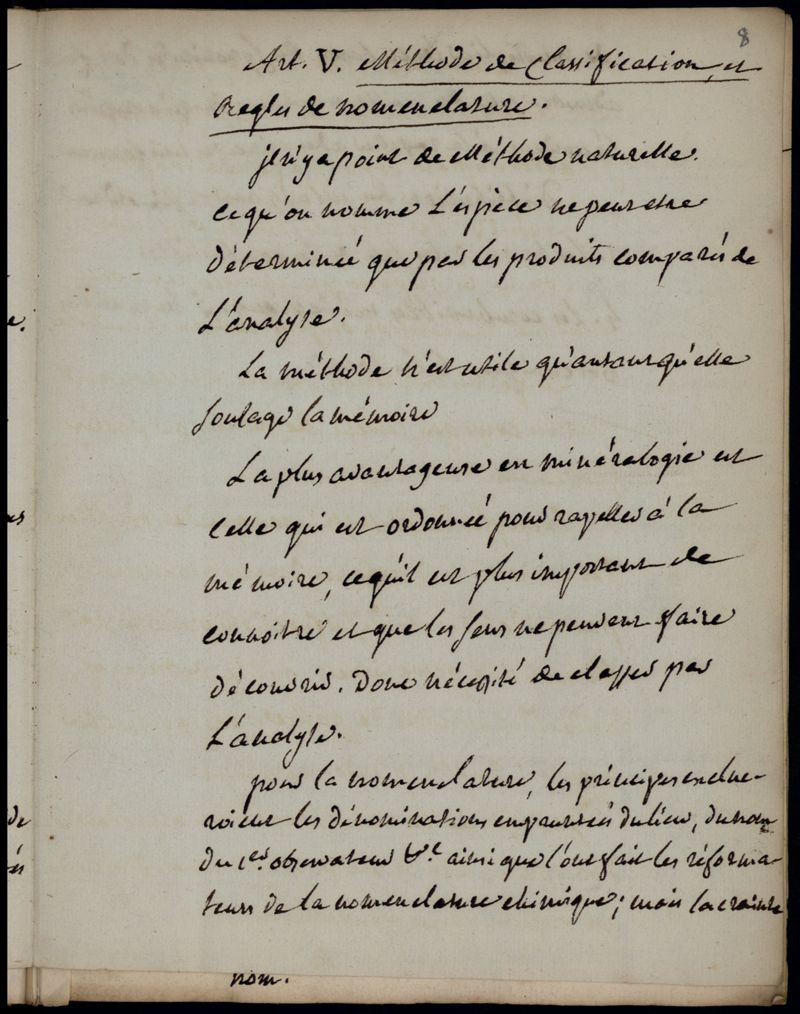 8
Art. V. Méthode de Classification, et
Regles de nomenclature.
il n'y a point de Méthode naturelle.
ce qu'on nomme L'éspèce ne peut etre
déterminé que par les produits comparés de
L'analyse.
La méthode n'est utile qu'autant qu'elle
soulage la mémoire
La plus avantageuse en minéralogie est
celle qui est ordonnée pour rapeller à la
mémoire, ce qu'il est plus important de
connoitre et que les sens ne peuvent faire
découvrir. Donc nécessité de classer par
L'analyse.
pour la nomenclature, les principes exclue-
roient les dénominations empruntées du lieu, du nom
du 1er. observateur &c. ainsi que l'ont fait les réforma-
teurs de la nomenclature chimique; mais la crainte
nom.
e.
es
de
és